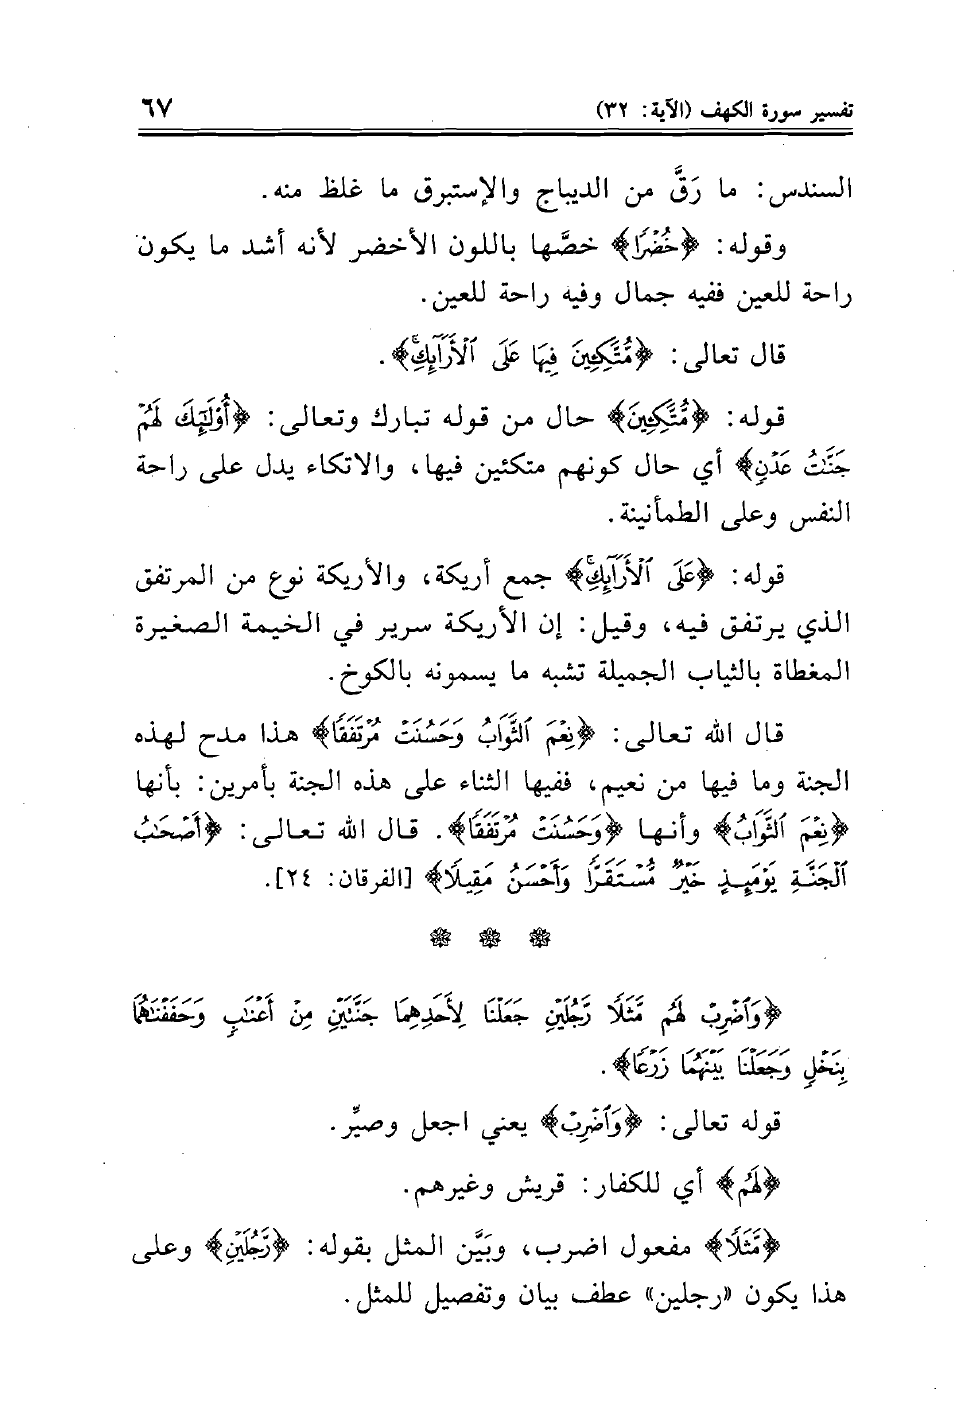 تفسير سورة الكهف (الآية: ٣٢) ٦٧
السندس: ما رَقَّ من الديباج والإستبرق ما غلظ منه.
وقوله: ﴿خُضْرًا﴾ خصَّها باللون الأخضر لأنه أشد ما يكون
راحة للعين ففيه جمال وفيه راحة للعين.
قال تعالى: ﴿مُّتَّكِـِٔينَ فِيهَا عَلَى ٱلْأَرَآئِكِۚ﴾.
قوله: ﴿مُّتَّكِـِٔينَ﴾ حال من قوله تبارك وتعالى: ﴿أُوْلَٰٓئِكَ لَهُمْ
جَنَّٰتُ عَدْنٍ﴾ أي حال كونهم متكئين فيها، والاتكاء يدل على راحة
النفس وعلى الطمأنينة.
قوله: ﴿عَلَى ٱلْأَرَآئِكِۚ﴾ جمع أريكة، والأريكة نوع من المرتفق
الذي يرتفق فيه، وقيل: إن الأريكة سرير في الخيمة الصغيرة
المغطاة بالثياب الجميلة تشبه ما يسمونه بالكوخ.
قال الله تعالى: ﴿نِعْمَ ٱلثَّوَابُ وَحَسُنَتْ مُرْتَفَقًا﴾ هذا مدح لهذه
الجنة وما فيها من نعيم، ففيها الثناء على هذه الجنة بأمرين: بأنها
﴿نِعْمَ ٱلثَّوَابُ﴾ وأنها ﴿وَحَسُنَتْ مُرْتَفَقًا﴾. قال الله تعالى: ﴿أَصْحَٰبُ
ٱلْجَنَّةِ يَوْمَئِذٍ خَيْرٌ مُّسْتَقَرًّا وَأَحْسَنُ مَقِيلًا﴾ [الفرقان: ٢٤].
﴿وَٱضْرِبْ لَهُم مَّثَلًا رَّجُلَيْنِ جَعَلْنَا لِأَحَدِهِمَا جَنَّتَيْنِ مِنْ أَعْنَٰبٍ وَحَفَفْنَٰهُمَا
بِنَخْلٍ وَجَعَلْنَا بَيْنَهُمَا زَرْعًا﴾.
قوله تعالى: ﴿وَٱضْرِبْ﴾ يعني اجعل وصيِّر.
﴿لَهُم﴾ أي للكفار: قريش وغيرهم.
﴿مَّثَلًا﴾ مفعول اضرب، وبَيَّن المثل بقوله: ﴿رَّجُلَيْنِ﴾ وعلى
هذا يكون «رجلين» عطف بيان وتفصيل للمثل.